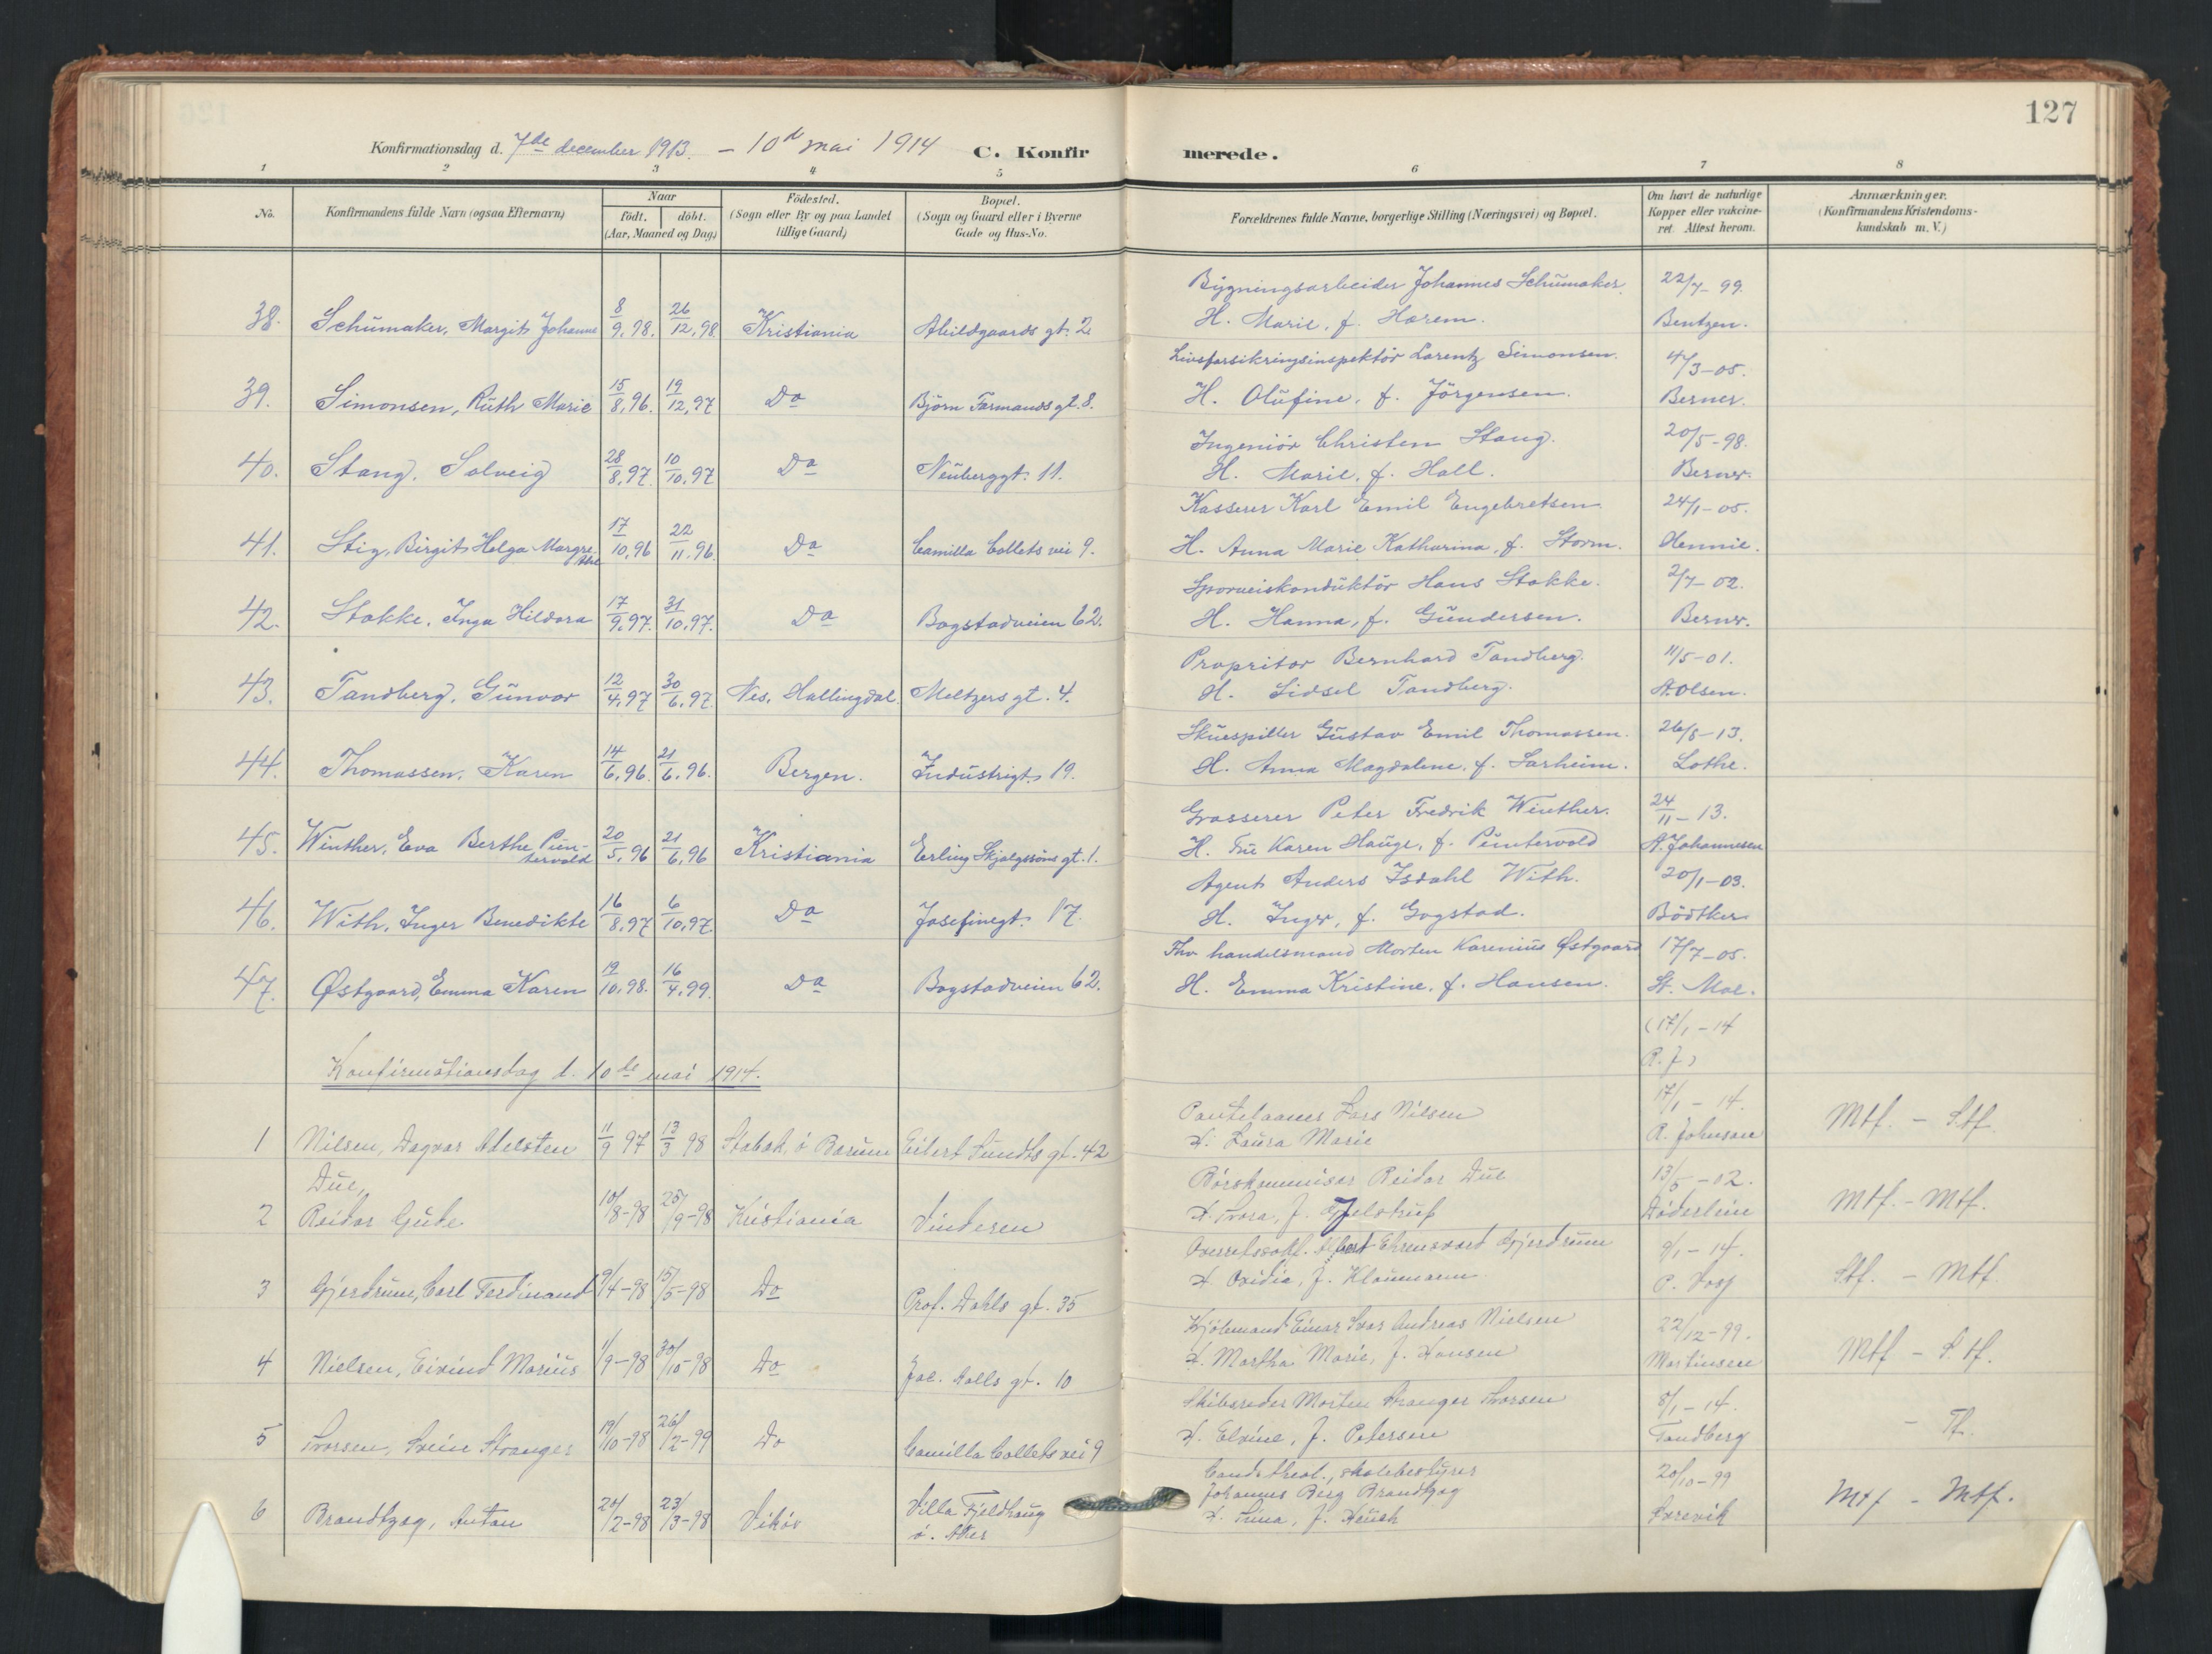 127
Konfirmationsdag d. 7de december 1913. – 10d mai 1914 C. Konfirmerede.
1 2 3 4 5 6 7 8
No. Konfirmandens fulde Navn (ogsaa Efternavn) Naar født. døbt. (Aar, Maaned og Dag) Fødested. (Sogn eller By og paa Landet tillige Gaard) Bopæl. (Sogn og Gaard eller i Byerne Gade og Hus-No. Forældrenes fulde Navne, borgerlige Stilling (Næringsvei) og Bopæl. Om havt de naturlige Kopper eller vakcineret. Attest herom. Anmærkninger. (Konfirmandens Kristendomskundskab m. V.)
Bygningsarbeider Johannes Schumaker. 22/7-99.
38. Schumaker, Margit Johanne 8/9,98. 26/12,98. Kristiania Abildgaards gt. 2 H. Marie, f. Harem. Bentzen.
Livsforsikringsinspektør Lorentz Simonsen. 4/3-05.
39. Simonsen, Ruth Marie 15/8,96. 19/12,97 Do Bjørn Farmands gt. 8. H. Olufine, f. Jörgensen. Berner.
Ingeniör Christen Stang. 20/5-98.
40. Stang, Solveig 28/8,97. 10/10,97 Do Neuberggt. 11. H. Marie, f. Hall. Berner.
Kasserer Karl Emil Engebretsen. 24/1-05.
41. Stig, Birgit Helga Margrethe 17/10,96 22/11,96. Do Camilla Collets vei 9. H. Anna Marie Katharina, f. Storm. Hennie.
Sporveiskonduktör Hans Stokke. 2/7-02.
42. Stokke, Inga Hildora 17/9,97. 31/10,97. Do Bogstadveien 62. H. Hanna, f. Gundersen. Berner.
Propritor Bernhard Tandberg. 11/5-01.
43. Tandberg, Gunvor 12/4,97 30/6,97. Nes, Hallingdal. Meltzers gt. 4. H. Sidsel Tandberg. A. Olsen.
Skuespiller Gustav Emil Thomassen. 26/8-13.
44. Thomassen, Karen 14/6,96. 21/6,96. Bergen. Industrigt. 19. H. Anna Magdalene, f. Sarheim. Lothe.
Grosserer Peter Fredrik Winther. 24/11-13.
45. Winther, Eva Berthe Puntervold 20/5,96 21/6,96 Kristiania Erling Skjalgssöns gt. 1. H. Fru Karen Hauge, f. Puntervold A. Johannesen
Agent Anders Isdahl With. 20/1-03.
46. With, Inger Benedikte 16/8,97 6/10,97. Do Josefinegt. 17. H. Inger, f. Gogstad. Bödtker
Fhv handelsmand Morten Karenius Østgaard 17/7-05.
47. Østgaard, Emma Karen 19/10,98. 16/4,99. Do Bogstadveien 62. H. Emma Kristine, f. Hansen. St. Moe.
(17/1-14
R. J.)
Konfirmationsdag d. 10de mai 1914.
Lars Nilsen 17/1-14.
1 Nilsen, Dagvar Adelsten 11/9 97 13/3 98 Stabæk i Bærum Eilert Sundts gt. 42 H. Laura Marie R. Johnsen Mtf. – S.tf.
Börskommisær Reidar Due 13/5-02.
2 Due, Reidar Gude 10/8-98 25/9-98 Kristiania Vinderen H. Thora, f. Gjelstrup Döderlein Mtf. – Mtf.
Overretssakf. Albert Ehrensvard Gjerdrum 9/1-14.
3 Gjerdrum, Carl Ferdinand 9/4-98 15/5-98 Do Prof. Dahls gt. 35 H. Ovidia, f. Klaumann P. Voss Stf. – Mtf.
Kjölemand Einar Ivar Andreas Nielsen 22/12-99.
4 Nielsen, Eivind Marius 1/9-98 30/10-98 Do Jac. Aalls gt. 10 H. Martha Marie, f. Hansen Martinsen Mtf – S.tf.
Skibsreder Morten Stranger Thorsen 8/1-14.
5 Thorsen, Svein Stranger 19/10-98 26/2-99 Do Camilla Collets vei 9 H. Elvine, f. Petersen Tandberg – Tf.
Cand. theol., skolebestyrer 20/10-99
6 Brandtzæg, Anton 20/2-98 23/3-98 Vikör Villa Fjeldhaug Johannes Berg Brandtzæg Mtf – Mtf.
v. Aker H. Anna, f. Krevik